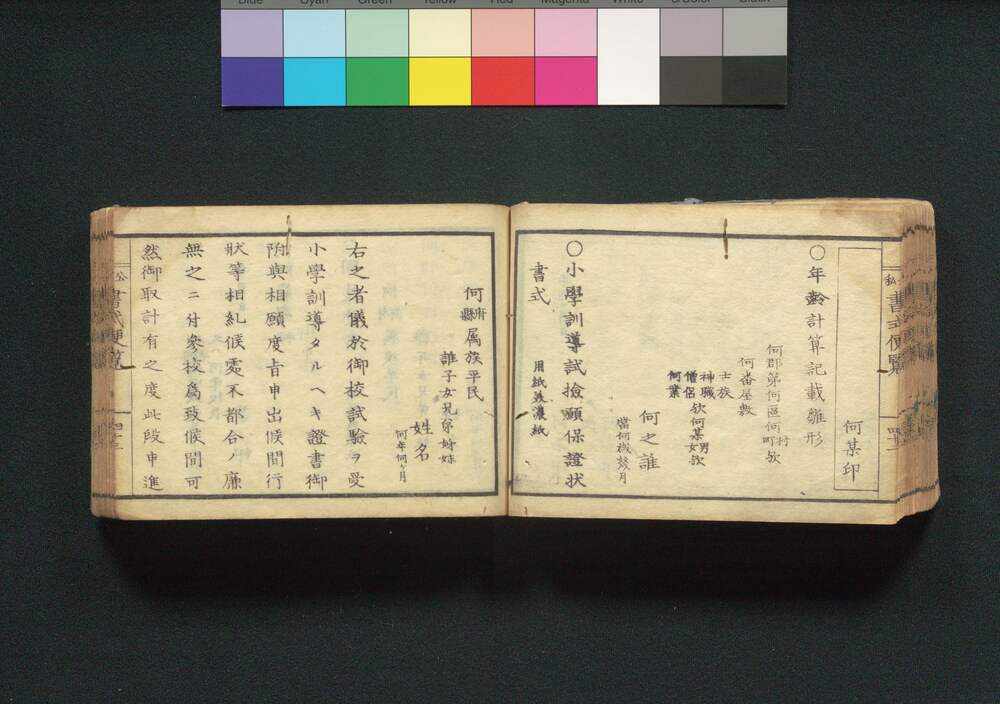 Blue Cyan Green Yellow Red Magenta White 3/Color Black
私 書式便覧
何某印
○年齢計算記載雛形
何郡第何區何村町欤
何番屋敷
士族
神職
僧侶
何業
欤何某男女欤
何之誰
當何歳幾月
○小學訓導試撿願保證状
書式
用紙美濃紙
何府縣属族平民
誰子女兄弟姉妹
姓名
何年何ヶ月
右之者儀於御校試驗ヲ受
小學訓導タルヘキ證書御
附與相願度旨申出候間行
状等相糺候處不都合ノ廉
無之ニ付參校爲致候間可
然御取計有之度此段申進
公 書式便覧